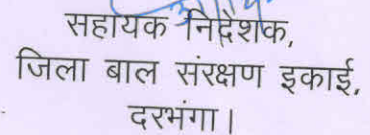 सहायक निदेशक,
जिला बाल संरक्षण इकाई,
दरभंगा।